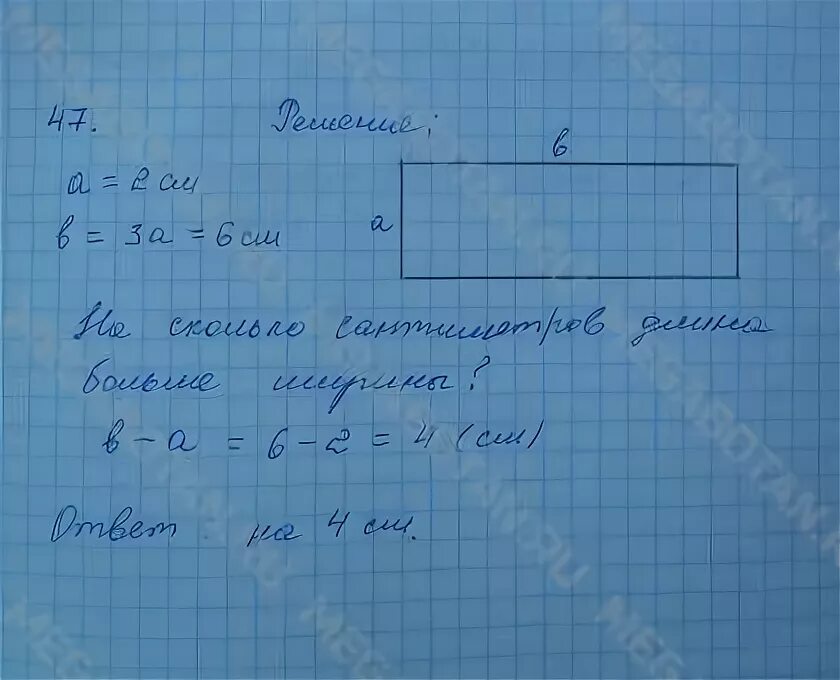 47. Решение:
в
a = 2 см
a
в = 3a = 6 см
На сколько сантиметров длина
больше ширины?
в - a = 6 - 2 = 4 (см)
Ответ на 4 см.
MEGABOTAN.RU